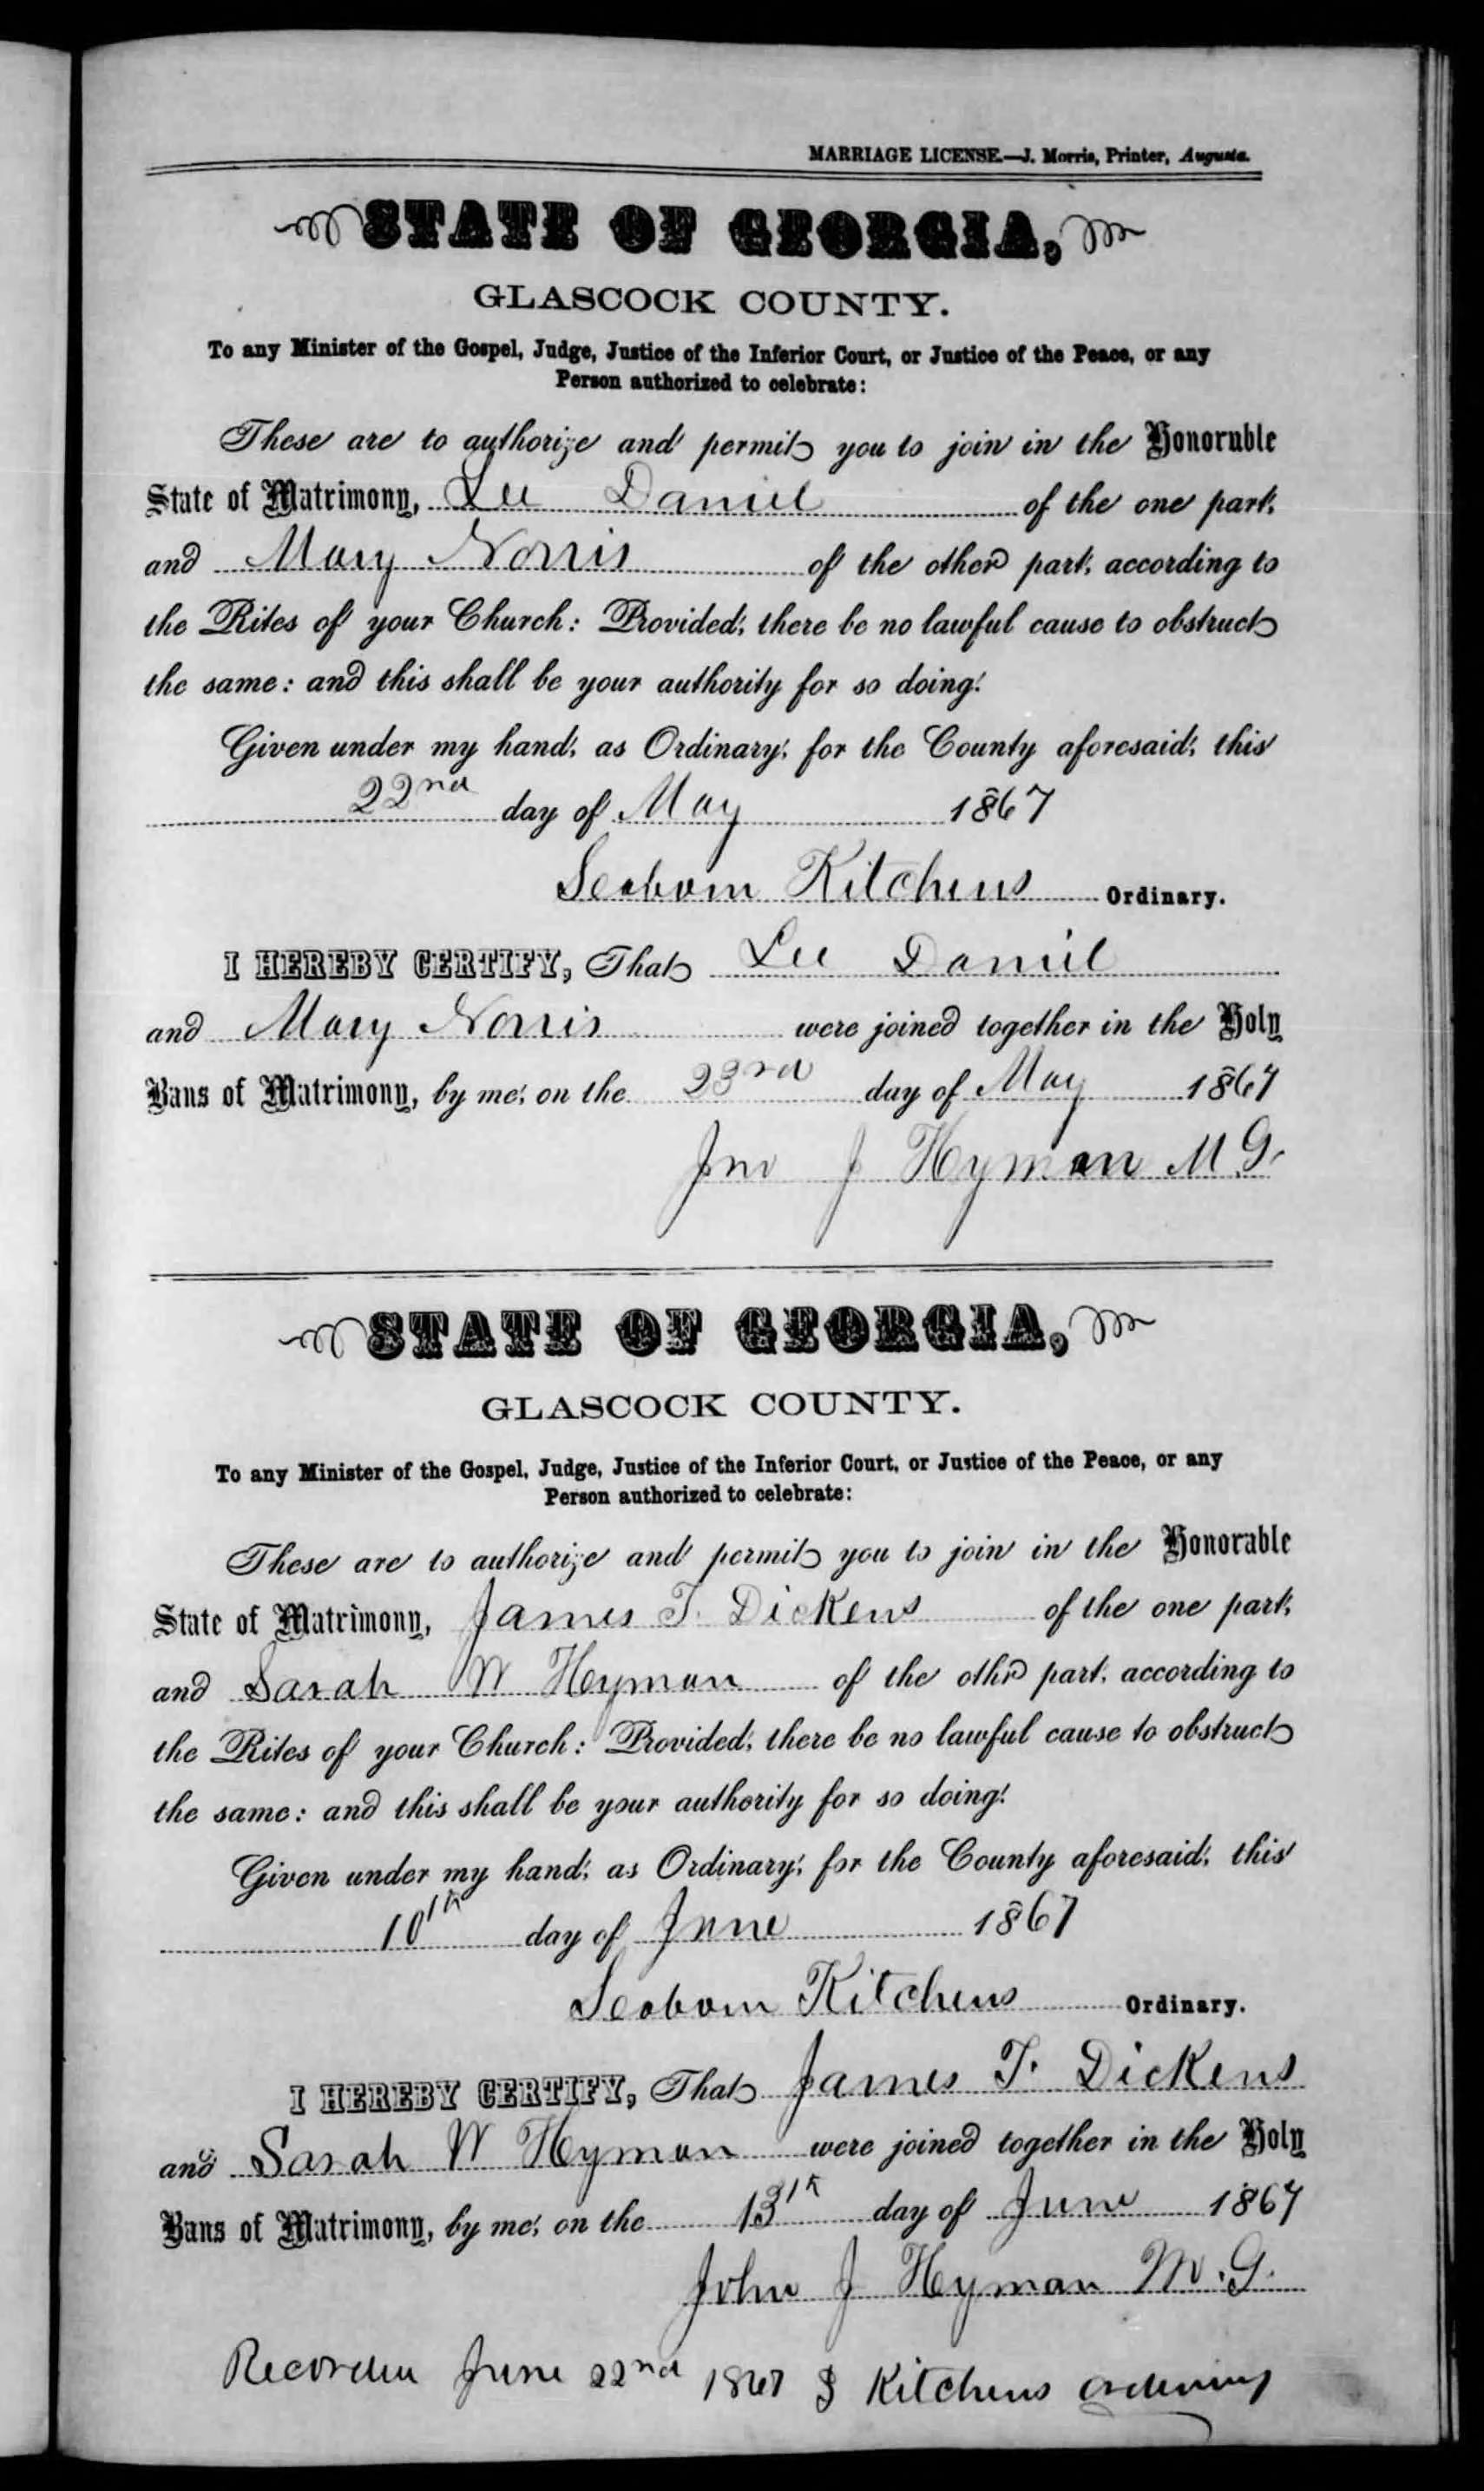 MARRIAGE LICENSE.—J. Morris, Printer, Augusta.
STATE OF GEORGIA,
GLASCOCK COUNTY.
To any Minister of the Gospel, Judge, Justice of the Inferior Court, or Justice of the Peace, or any
Person authorized to celebrate:
These are to authorize and permit you to join in the Honorable
State of Matrimony, Lee Daniel of the one part,
and Mary Norris of the other part, according to
the Rites of your Church: Provided, there be no lawful cause to obstruct
the same: and this shall be your authority for so doing.
Given under my hand, as Ordinary, for the County aforesaid, this
22nd day of May 1867
Seaborn Kitchens Ordinary.
I HEREBY CERTIFY, That Lee Daniel
and Mary Norris were joined together in the Holy
Bans of Matrimony, by me, on the 23rd day of May 1867
Jno J Hyman M G.
STATE OF GEORGIA,
GLASCOCK COUNTY.
To any Minister of the Gospel, Judge, Justice of the Inferior Court, or Justice of the Peace, or any
Person authorized to celebrate:
These are to authorize and permit you to join in the Honorable
State of Matrimony, James T. Dickens of the one part,
and Sarah W Hyman of the othr part, according to
the Rites of your Church: Provided, there be no lawful cause to obstruct
the same: and this shall be your authority for so doing.
Given under my hand, as Ordinary, for the County aforesaid, this
10th day of June 1867
Seaborn Kitchens Ordinary.
I HEREBY CERTIFY, That James T. Dickens
and Sarah W Hyman were joined together in the Holy
Bans of Matrimony, by me, on the 13th day of June 1867
John J Hyman M.G.
Recorded June 22nd 1867 S Kitchens ordinary